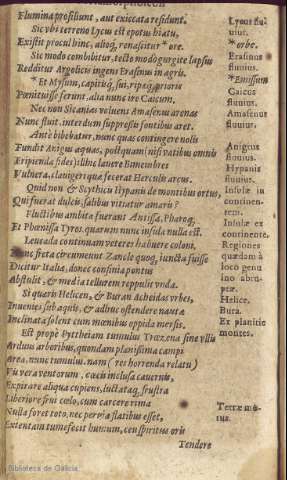 Flumina prosiliunt, aut exiccata residunt.
Sic vbi terreno Lycus est epotus hiatu,
Existit procul hinc, alioq, renascitur * ore.
Sic modo combibitur, tecto modo gurgite lapsus
Redditur Argolicis ingens Erasinus in agris.
* Et Mysum, capitisq, sui, ripæq, prioris
Pœnituisse ferunt, alia nunc ire Caicum.
Nec non Sicanias voluens Amasenus arenas
Nunc fluit, interdum suppressis fontibus aret.
Ante bibebatur, nunc quas contingere nolis
Fundit Anigrus aquas, postquam nisi vatibus omnis
Eripienda fides illic lauere bimembres
Vulnera, clauigeri quæ fecerat Herculis arcus.
Quid non & Scythicis Hypanis de montibus ortus,
Qui fuerat dulcis, salibus vitiatur amaris?
Fluctibus ambitæ fuerant Antissa, Pharoq,
Et Phœnissa Tyros, quarum nunc insula nulla est.
Leucada continuam veteres habuere coloni,
Nunc freta circumeunt Zancle quoq, iuncta fuisse
Dicitur Italiæ, donec confinia pontus
Abstulit, & media tellurem reppulit vnda.
Si quæris Helicen, & Buran Achaidas vrbes,
Inuenies sub aquis, & adhuc ostendere nautæ
Inclinata solent cum mœnibus oppida mersis.
Est prope Pyttheiam tumulus Trœzena sine vllis
Arduus arboribus, quondam planissima campi
Area, nunc tumulus, nam (res horrenda relatu)
Vis fera ventorum, cæcis inclusa cauernis,
Expirare aliqua cupiens, luctataq, frustra
Liberiore frui cœlo, cum carcere rima
Nulla foret toto, nec peruia flatibus esset,
Extentam tumefecit humum, ceu spiritus oris
Tendere
Lycus flu
uius.
* orbe.
Erasinus
fluuius.
* Emissum
Caicus
fluuius.
Amasenus
fluuius.
Anigrus
fluuius.
Hypanis
fluuius.
Insulæ in
continen-
tem.
Insulæ ex
continente.
Regiones
quædam à
loco genu
ino abru-
ptæ.
Helice,
Bura.
Ex planitie
montes.
Terræ mo-
tus.
Biblioteca de Galicia